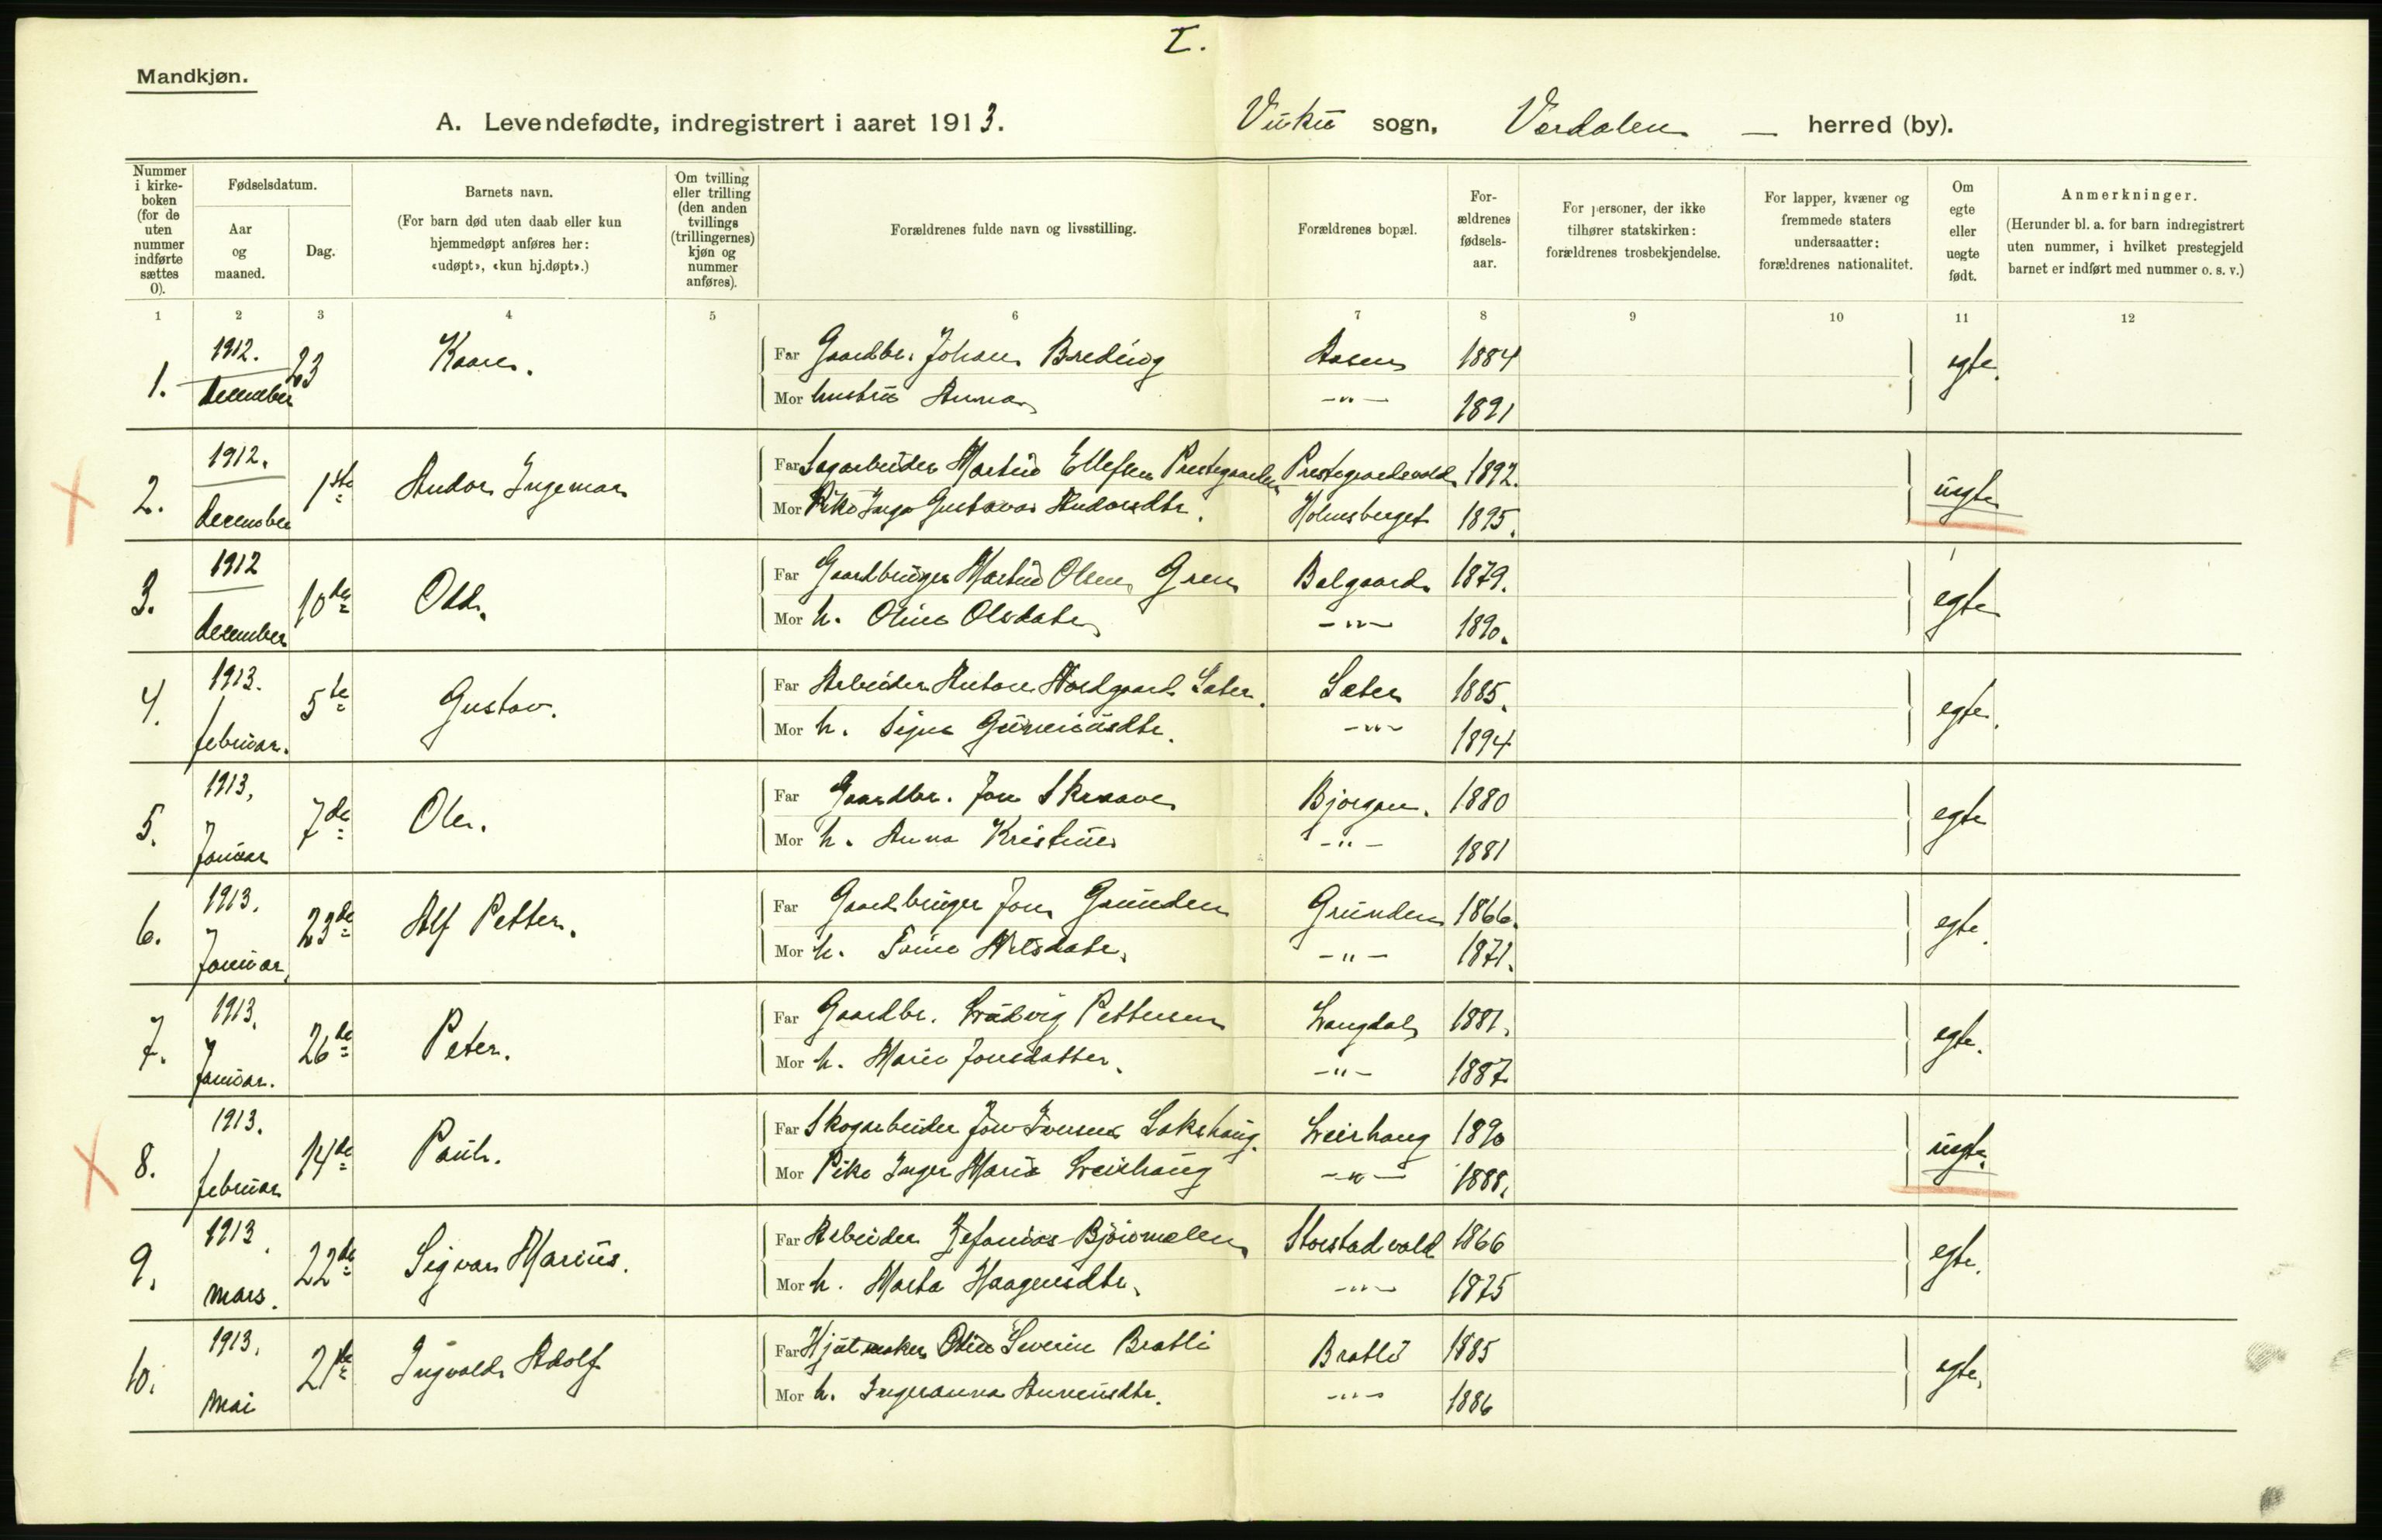 I.
Mandkjøn.
A. Levendefødte, indregistrert i aaret 1913. Vuku sogn, Værdalen — herred (by).
Nummer i kirke-boken (for de uten nummer indførte sættes 0).
Fødselsdatum.
Aar og maaned.
Dag.
Barnets navn.
(For barn død uten daab eller kun hjemmedøpt anføres her: «udøpt», «kun hj.døpt».)
Om tvilling eller trilling (den anden tvillings (trillingernes) kjøn og nummer anføres).
Forældrenes fulde navn og livsstilling.
Forældrenes bopæl.
For-ældrenes fødsels-aar.
For personer, der ikke tilhører statskirken: forældrenes trosbekjendelse.
For lapper, kvæner og fremmede staters undersaatter: forældrenes nationalitet.
Om egte eller uegte født.
Anmerkninger.
(Herunder bl. a. for barn indregistrert uten nummer, i hvilket prestegjeld barnet er indført med nummer o. s. v.)
1 2 3 4 5 6 7 8 9 10 11 12
1. 1912. december 23 Kaare. Far Gaardbr. Johan Breding Aasen 1884 egte.
Mor hustru Anna -"- 1891
2. 1912. december 1ste Andor Ingemar Far Sagarbeider Martin Ellefsen Prestegaarden Prestegaardsvald 1892. uegte
Mor Pike Inga Gustava Andorsdtr. Holmsberget 1895.
3. 1912 december 10de Odd. Far Gaardbruger Martin Olsen Green Balgaard 1879. egte
Mor h. Oline Olsdatr -"- 1890.
4. 1913. februar. 5te Gustav. Far Arbeider Anton Nordgaard Sæter. Sæter 1885. egte.
Mor h. Signe Guneriusdtr. -"- 1894
5. 1913, Januar 7de Ole. Far Gaardbr. Jon Skraave Bjørgan. 1880 egte
Mor h. Anna Kristine -"- 1881
6. 1913. Januar. 23de Alf Petter. Far Gaardbruger Jon Grunden Grunden 1866. egte.
Mor h. -"- 1871.
7. 1913. Januar. 26de Peter. Far Gaardbr. Ludvig Pettersen Langdal 1881. egte.
Mor h. Marie Jonsdatter. -"- 1887
8. 1913. februar 14de Paul. Far Skogarbeider Jon Iversen Lokshaug. Leirhaug 1890 uegte.
Mor Pike Inger Maria Leirhaug -"- 1888.
9. 1913. mars. 22de Sigvar Marius. Far Arbeider Zefanias Bjørsmelen Storstadvald 1866 egte.
Mor h. Marta Haagensdtr. -"- 1875
10. 1913. Mai 21de Ingvald Adolf Far Hjulmaker Odin Severin Bratli Bratli 1885 egte.
Mor h. Ingeranna -"- 1886